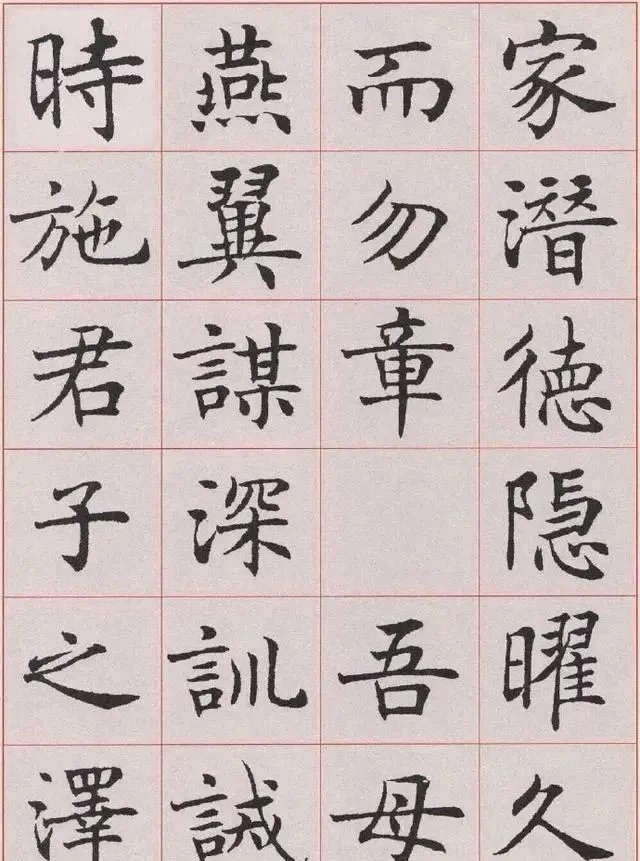 家潛德隐曜久
而勿章吾母
燕翼謀深訓誡
時施君子之澤